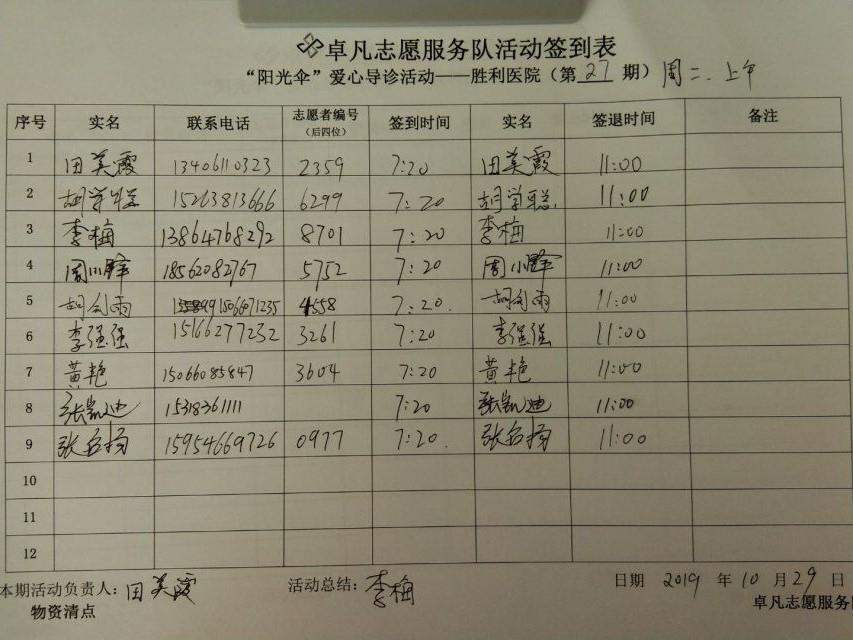 卓凡志愿服务队活动签到表
“阳光伞”爱心导诊活动——胜利医院（第27期）周二.上午
序号 实名 联系电话 志愿者编号（后四位） 签到时间 实名 签退时间 备注
1 田美霞 13406110323 2359 7:20 田美霞 11:00
2 胡学聪 15263813666 6299 7:20 胡学聪 11:00
3 李梅 13864768292 8701 7:20 李梅 11:00
4 周小峰 18562082767 5752 7:20 周小峰 11:00
5 4558 7:20 11:00
6 李强强 15166277232 3261 7:20 李强强 11:00
7 黄艳 15066085847 3604 7:20 黄艳 11:00
8 张凯迪 15318361111 7:20 张凯迪 11:00
9 张名扬 15954669726 0977 7:20 张名扬 11:00
10
11
12
本期活动负责人：田美霞 活动总结：李梅 日期 2019 年 10 月 29 日
物资清点 卓凡志愿服务队